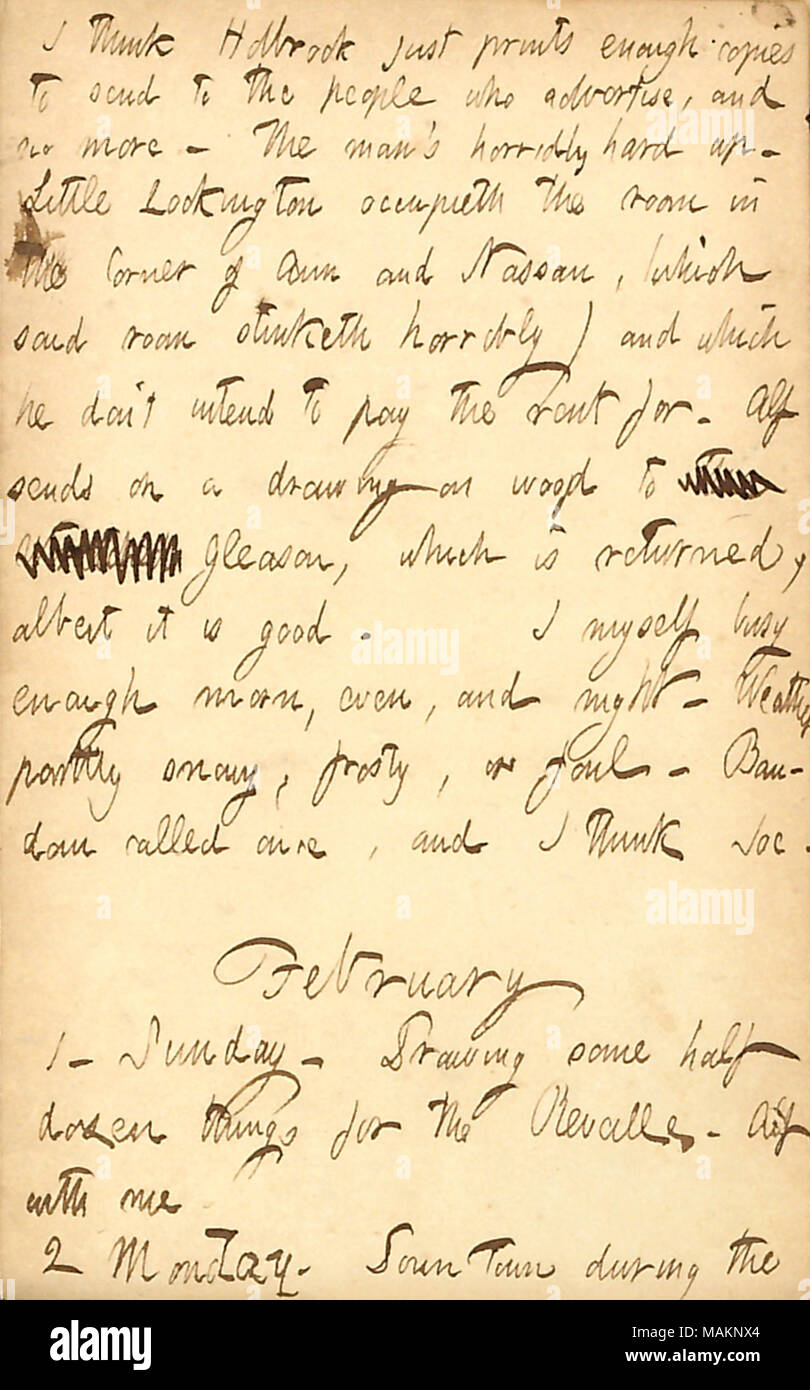 I think Holbrook just prints enough copies
to send to the people who advertise, and
no more - The man's horridly hard up -
Little Lockington occupieth the room in
the Corner of Ann and Nassau, (which
said room stinketh horribly) and which
he don't intend to pay the rent for - Alf
sends on a drawing on wood to
Gleason, which is returned,
albeit it is good. I myself busy
enough morn, even, and night - Weather
partly snowy, frosty, or foul - Bau-
dom called once, and I think Joe.
February
1 - Sunday - Drawing some half
dozen things for the Reveille - Alf
with me
2 Monday. Down Town during the
alamy
Image ID: MAKNX4
www.alamy.com